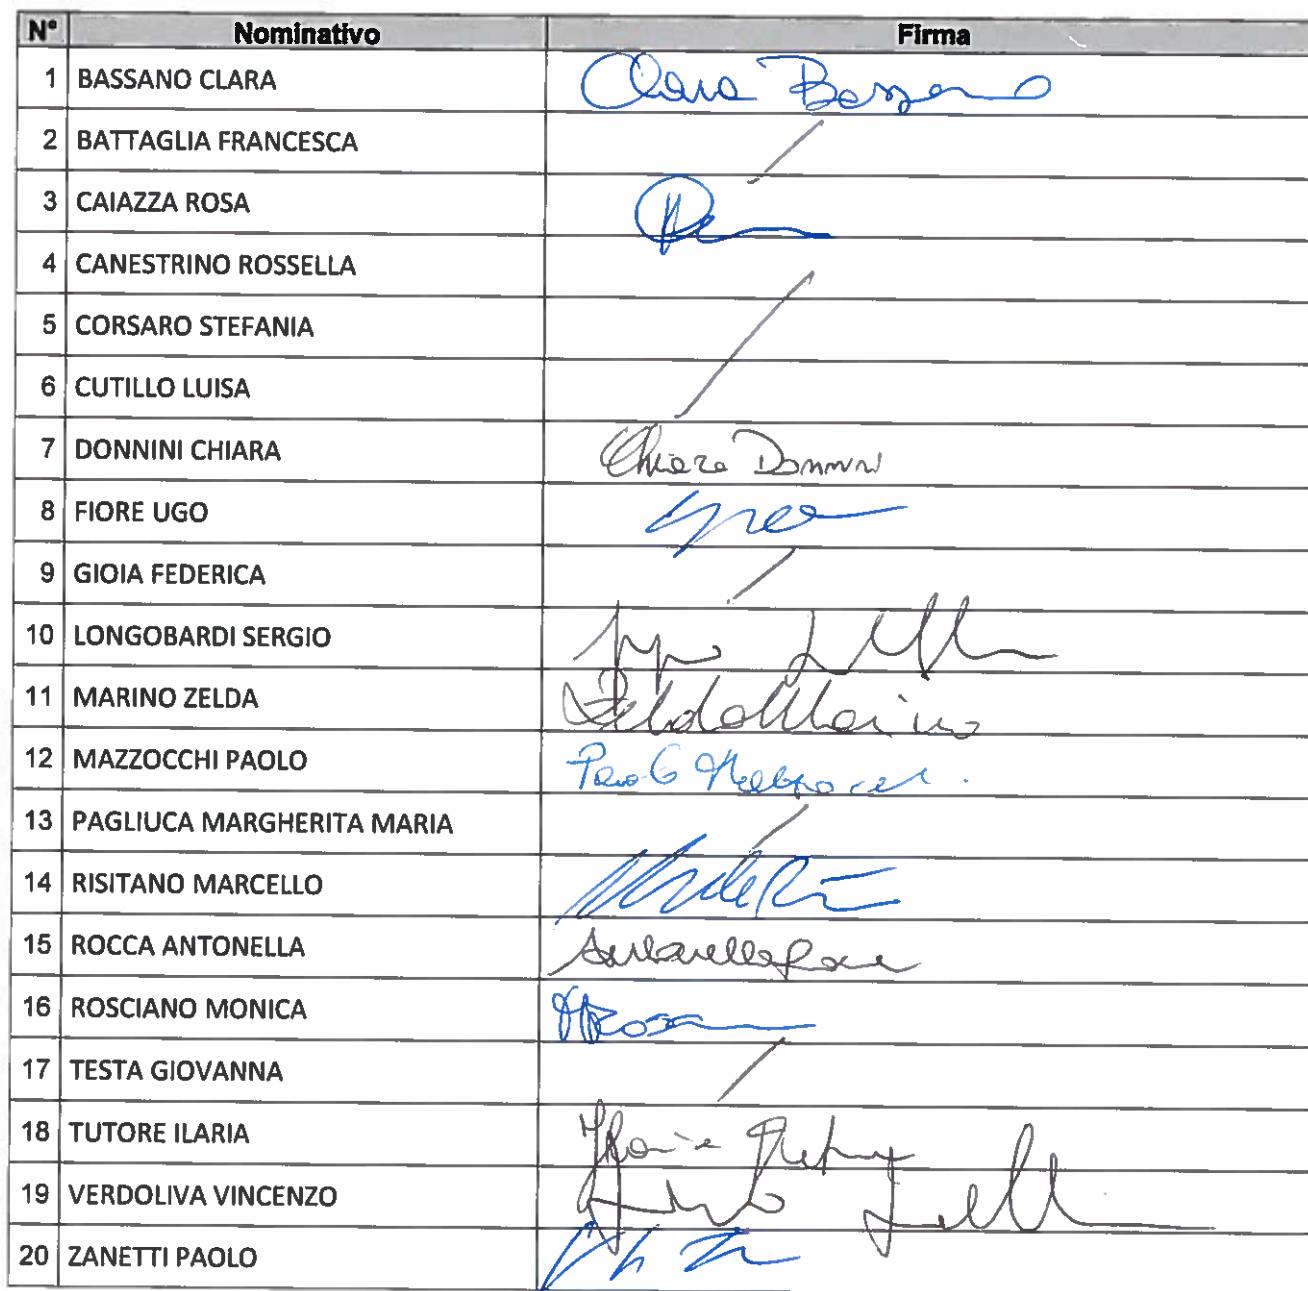 N° Nominativo Firma
1 BASSANO CLARA Clara Bassano
2 BATTAGLIA FRANCESCA
3 CAIAZZA ROSA
4 CANESTRINO ROSSELLA
5 CORSARO STEFANIA
6 CUTILLO LUISA
7 DONNINI CHIARA Chiara Donnini
8 FIORE UGO
9 GIOIA FEDERICA
10 LONGOBARDI SERGIO
11 MARINO ZELDA Zelda Marino
12 MAZZOCCHI PAOLO Paolo Mazzocchi
13 PAGLIUCA MARGHERITA MARIA
14 RISITANO MARCELLO
15 ROCCA ANTONELLA Antonella Rocca
16 ROSCIANO MONICA
17 TESTA GIOVANNA
18 TUTORE ILARIA Ilaria Tutore
19 VERDOLIVA VINCENZO
20 ZANETTI PAOLO